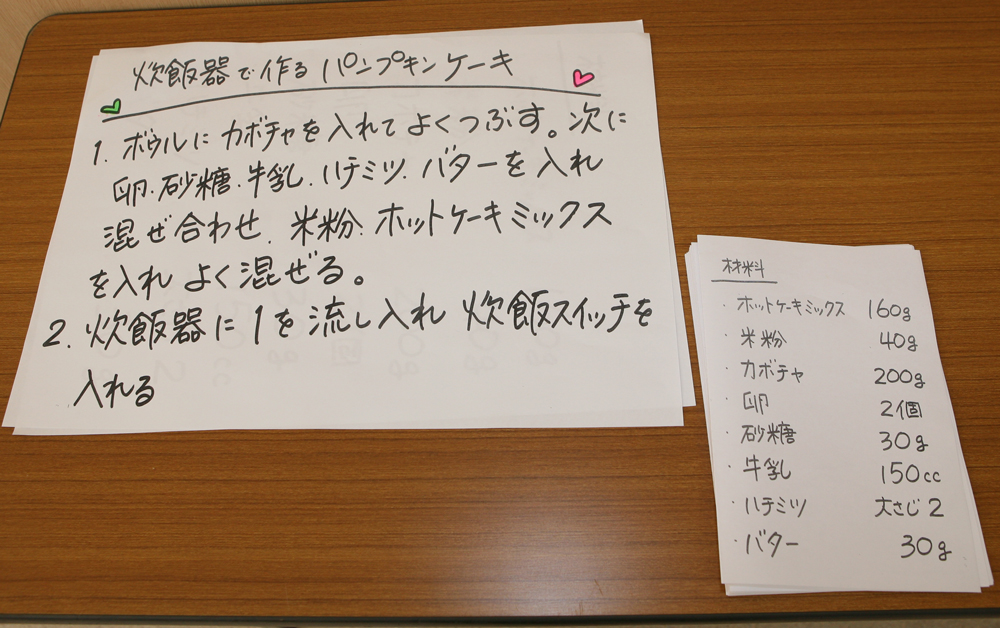 炊飯器で作るパンプキンケーキ
1. ボウルにカボチャを入れてよくつぶす。次に
卵・砂糖・牛乳・ハチミツ・バターを入れ
混ぜ合わせ、米粉・ホットケーキミックス
を入れよく混ぜる。
2. 炊飯器に1を流し入れ 炊飯スイッチを
入れる
材料
・ホットケーキミックス 160g
・米粉 40g
・カボチャ 200g
・卵 2個
・砂糖 30g
・牛乳 150cc
・ハチミツ 大さじ2
・バター 30g